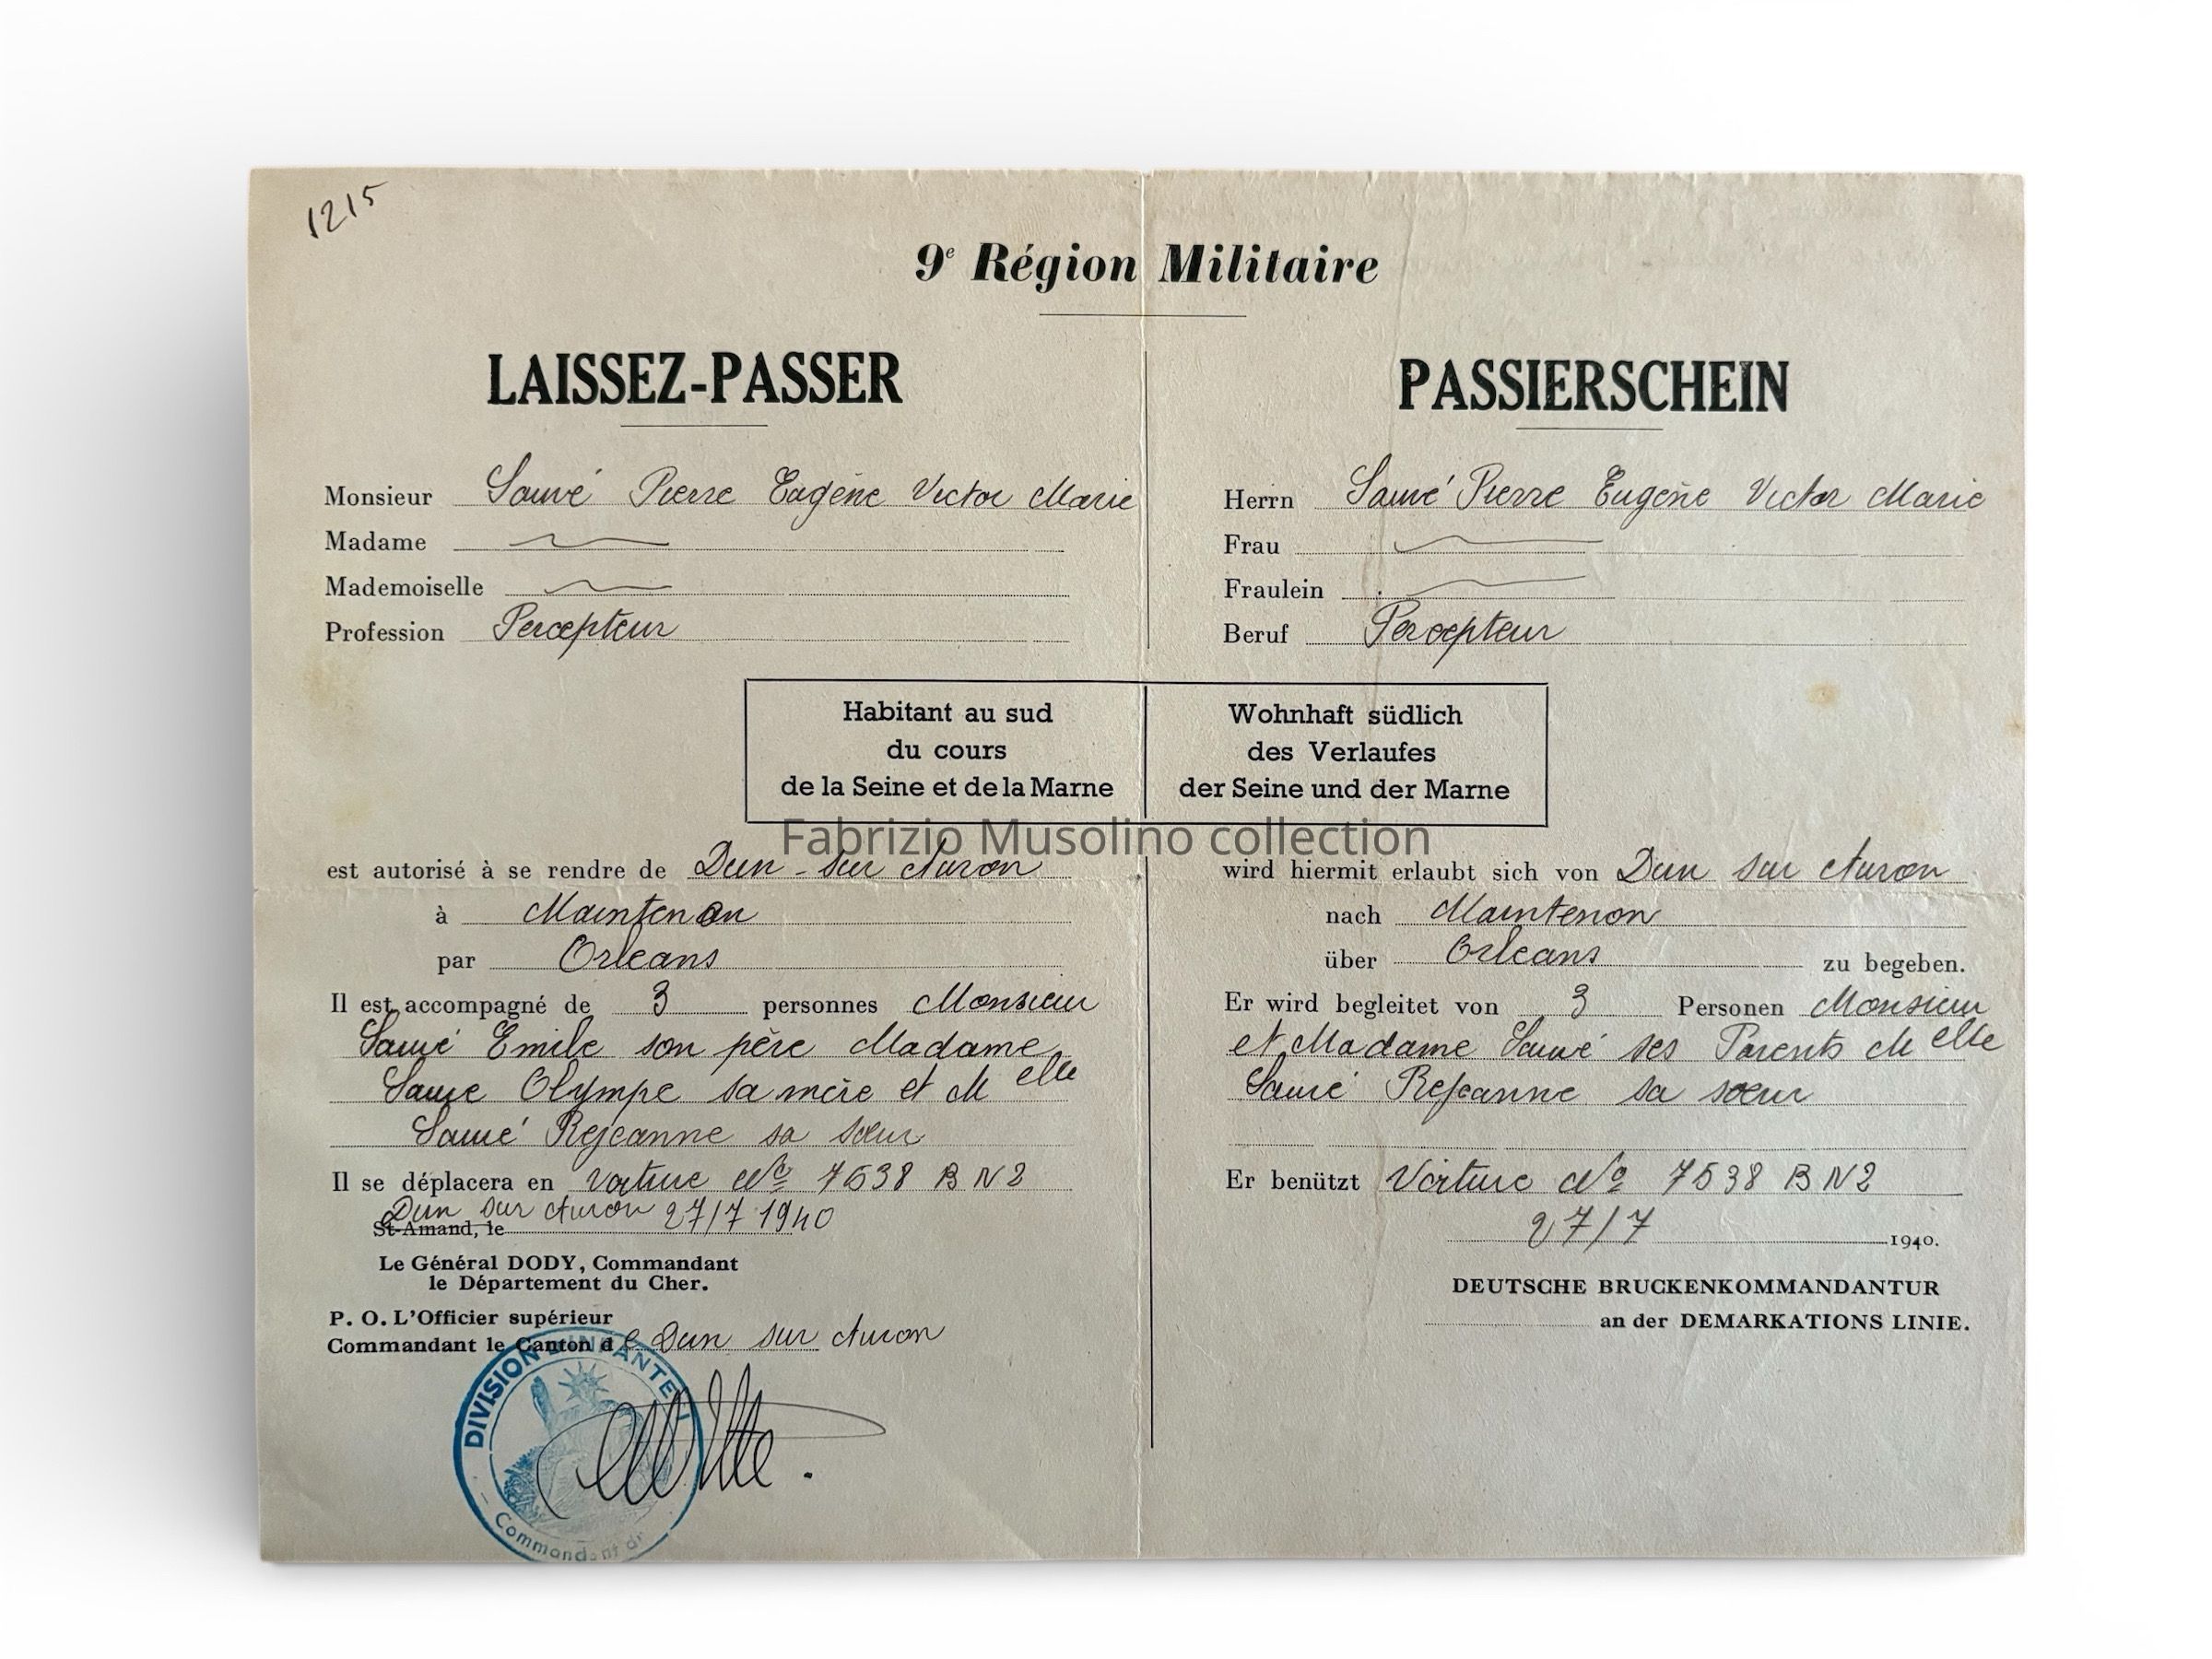 1215
9e Région Militaire
LAISSEZ-PASSER
Monsieur Sauvé Pierre Eugène Victor Marie
Madame
Mademoiselle
Profession Percepteur
Habitant au sud
du cours
de la Seine et de la Marne
est autorisé à se rendre de Dun-sur Auron
à Maintenon
par Orleans
Il est accompagné de 3 personnes Monsieur
Sauvé Emile son père Madame
Sauvé Olympe sa mère et Melle
Sauvé Rejeanne sa sœur
Il se déplacera en Voiture No 7538 B N2
Dun sur Auron 27/7 1940
St-Amand, le
Le Général DODY, Commandant
le Département du Cher.
P. O. L'Officier supérieur
Commandant le Canton de Dun sur Auron
DIVISION D'INFANTERIE
Commandant
PASSIERSCHEIN
Herrn Sauvé Pierre Eugène Victor Marie
Frau
Fraulein
Beruf Percepteur
Wohnhaft südlich
des Verlaufes
der Seine und der Marne
wird hiermit erlaubt sich von Dun sur Auron
nach Maintenon
über Orleans zu begeben.
Er wird begleitet von 3 Personen Monsieur
et Madame Sauvé ses Parents Melle
Sauvé Rejeanne sa sœur
Er benützt Voiture No 7538 B N2
27/7 1940.
DEUTSCHE BRUCKENKOMMANDANTUR
an der DEMARKATIONS LINIE.
Fabrizio Musolino collection